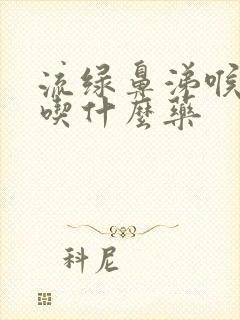 流绿鼻涕喉
喫什麼药
科尼